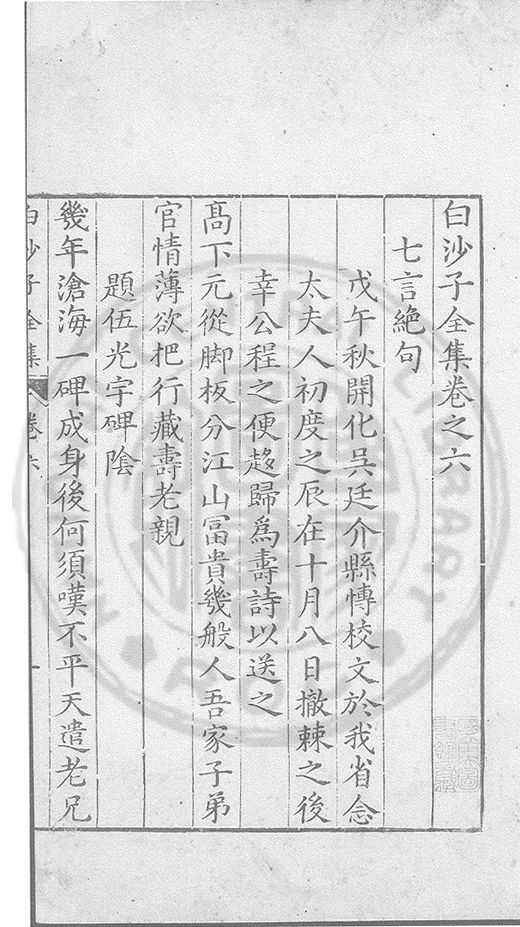 白沙子全集卷之六
七言絶句
戊午秋開化吳廷介縣愽校文於我省念
太夫人初度之辰在十月八日撤棘之後
幸公程之便趍歸爲壽詩以送之
髙下元從脚板分江山冨貴幾般人吾家子弟
官情薄欲把行藏壽老親
題伍光宇碑隂
幾年滄海一碑成身後何須嘆不平天遣老兄
白沙子全集
卷六
一